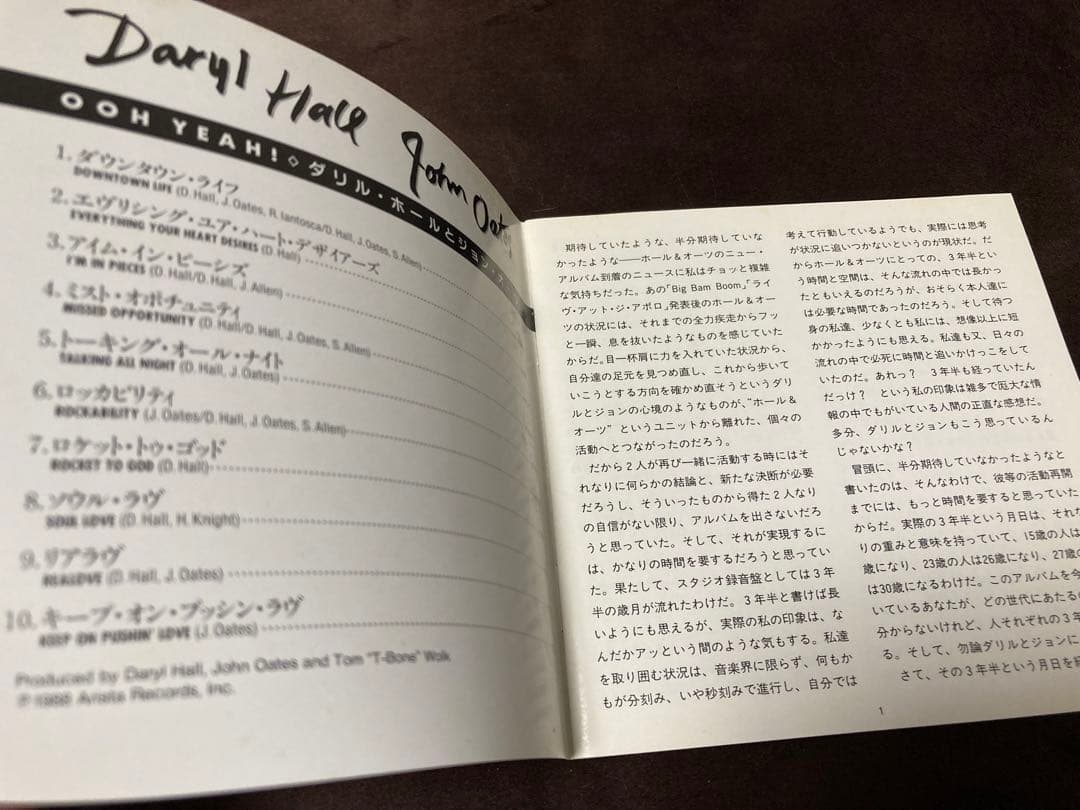 Daryl Hall John Oates
OOH YEAH!◇ダリル・ホールとジョン・
1. ダウンタウン・ライフ
DOWNTOWN LIFE (D. Hall, J. Oates, R. Iantosca/D. Hall, J. Oates, S. Allen)
2. エヴリシング・ユア・ハート・デザイアーズ
EVERYTHING YOUR HEART DESIRES (D. Hall)
3. アイム・イン・ピーシズ
I'M IN PIECES (D. Hall/D. Hall, J. Allen)
4. ミスト・オポチュニティ
MISSED OPPORTUNITY (D. Hall/D. Hall, J. Oates, S. Allen)
5. トーキング・オール・ナイト
TALKING ALL NIGHT (D. Hall, J. Oates)
6. ロッカビリティ
ROCKABILITY (J. Oates/D. Hall, J. Oates, S. Allen)
7. ロケット・トゥ・ゴッド
ROCKET TO GOD (D. Hall)
8. ソウル・ラヴ
SOUL LOVE (D. Hall, H. Knight)
9. リアラヴ
REALOVE (D. Hall, J. Oates)
10. キープ・オン・プッシン・ラヴ
KEEP ON PUSHIN' LOVE (J. Oates)
Produced by Daryl Hall, John Oates and Tom "T-Bone" Wolk
℗1988 Arista Records, Inc.
期待していたような、半分期待していな
かったような――ホール&オーツのニュー・
アルバム到着のニュースに私はチョッと複雑
な気持ちだった。あの「Big Bam Boom」「ライ
ヴ・アット・ジ・アポロ」発表後のホール&オー
ツの状況には、それまでの全力疾走からフッ
と一瞬、息を抜いたようなものを感じていた
からだ。目一杯肩に力を入れていた状況から、
自分達の足元を見つめ直し、これから歩いて
いこうとする方向を確かめ直そうというダリ
ルとジョンの心境のようなものが、"ホール&
オーツ" というユニットから離れた、個々の
活動へとつながったのだろう。
だから2人が再び一緒に活動する時にはそ
れなりに何らかの結論と、新たな決断が必要
だろうし、そういったものから得た2人なり
の自信がない限り、アルバムを出さないだろ
うと思っていた。そして、それが実現するに
は、かなりの時間を要するだろうと思ってい
た。果たして、スタジオ録音盤としては3年
半の歳月が流れたわけだ。3年半と書けば長
いようにも思えるが、実際の私の印象は、な
んだかアッという間のような気もする。私達
を取り囲む状況は、音楽界に限らず、何もか
もが分刻み、いや秒刻みで進行し、自分では
考えて行動しているようでも、実際には思考
が状況に追いつかないというのが現状だ。だ
からホール&オーツにとっての、3年半とい
う時間と空間は、そんな流れの中では長かっ
たともいえるのだろうが、おそらく本人達に
は必要な時間であったのだろう。そして待つ
身の私達、少なくとも私には、想像以上に短
かかったようにも思える。私達も又、日々の
流れの中で必死に時間と追いかけっこをして
いたのだ。あれっ? 3年半も経っていたん
だっけ? という私の印象は雑多で厖大な情
報の中でもがいている人間の正直な感想だ。
多分、ダリルとジョンもこう思っているん
じゃないかな?
冒頭に、半分期待していなかったようなと
書いたのは、そんなわけで、彼等の活動再開
までには、もっと時間を要すると思っていた
からだ。実際の3年半という月日は、それな
りの重みと意味を持っていて、15歳の人は
歳になり、23歳の人は26歳になり、27歳の
は30歳になるわけだ。このアルバムを今
いているあなたが、どの世代にあたるの
分からないけれど、人それぞれの3年
る。そして、勿論ダリルとジョンに
さて、その3年半という月日を経
1